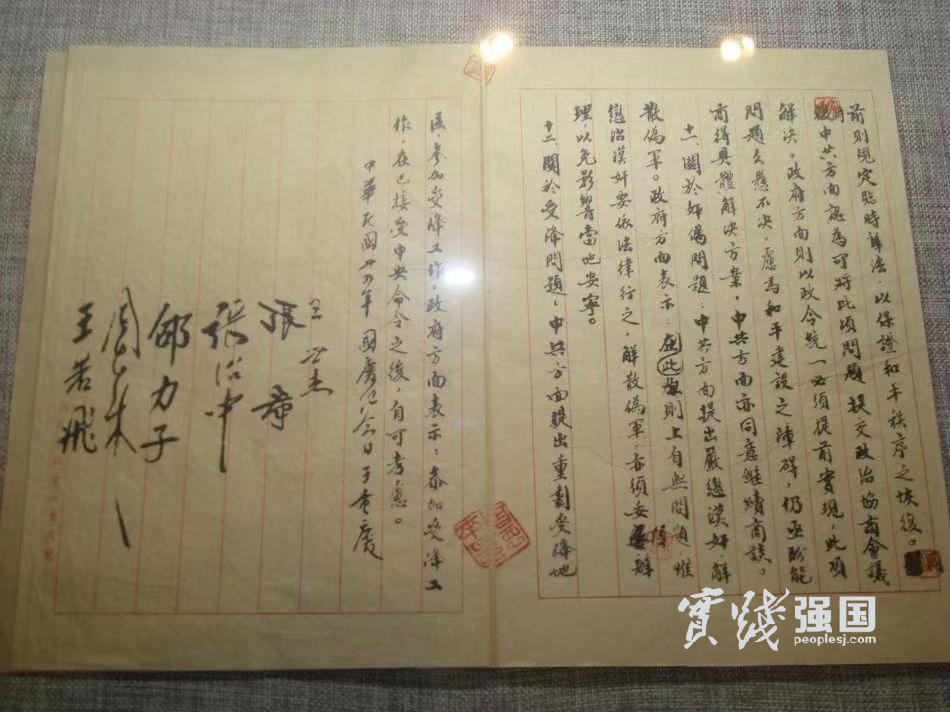 前則規定臨時辦法，以保證和平秩序之恢復。
時中共方面認為可將此項問題提交政治協商會議
解決。政府方面則以政令統一必須提前實現，此項
問題久懸不決，慮為和平建設之障碍，仍亟盼能
商得具體解决方案，中共方面亦同意継續商談。
十一、關於奸偽問題：中共方面提出嚴懲漢奸，解
散偽軍。政府方面表示：此在原則上自無問題，惟
懲治漢奸要依法律行之，解散偽軍，亦須妥慎辦
理，以免影響當地安寧。
十二、關於受降問題：中共方面提出重劃受降地
區，參加受降工作，政府方面表示：參加受降工
作，在已接受中央命令之後，自可考慮。
中華民國卅四年國慶紀念日于重慶
王世杰
張羣
張治中
邵力子
周恩來
王若飛
實踐强国
peoplesj.com